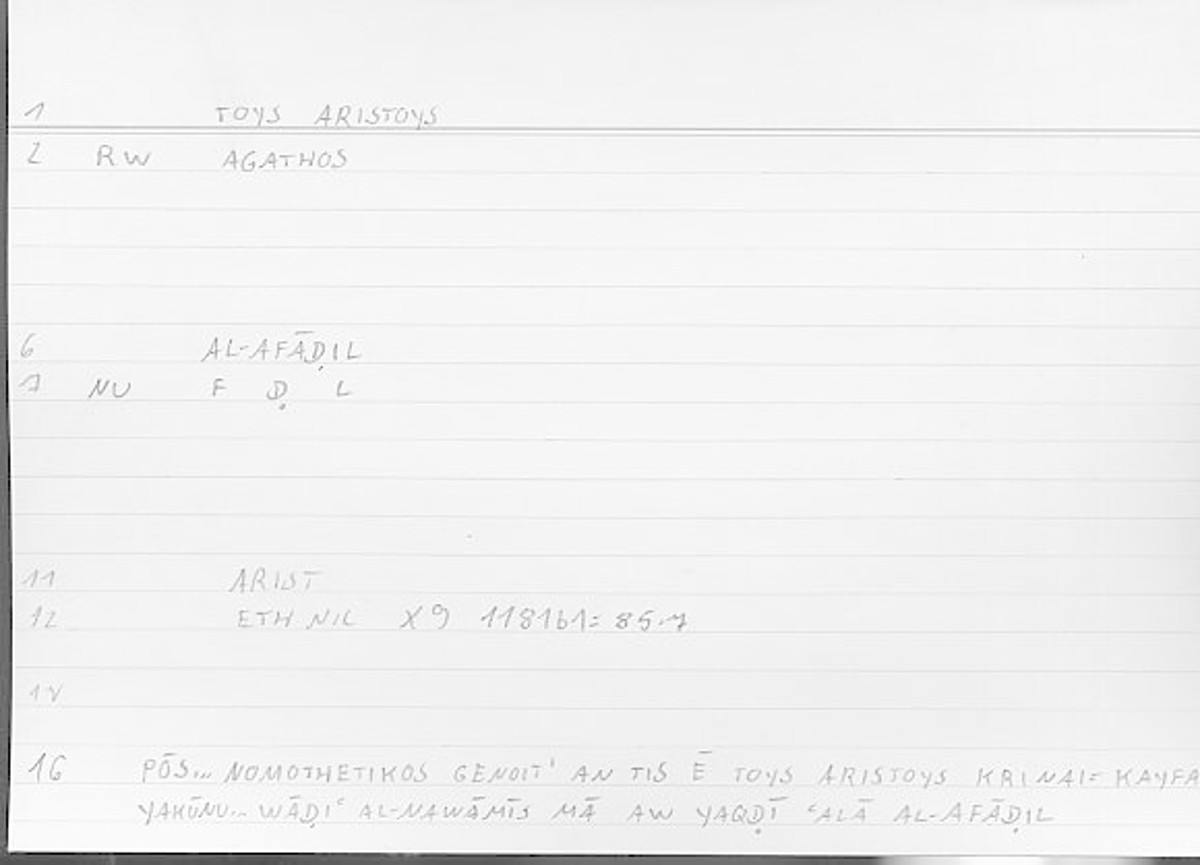 1 TOYS ARISTOYS
2 RW AGATHOS
6 AL-AFĀḌIL
7 NU F Ḍ L
11 ARIST
12 ETH NIC X9 1181b1= 85.7
14
16 PŌS... NOMOTHETIKOS GENOIT' AN TIS Ē TOYS ARISTOYS KRINAI= KAYFA
YAKŪNU... WĀḌIʿ AL-NAWĀMĪS MĀ AW YAQḌĪ ʿALĀ AL-AFĀḌIL